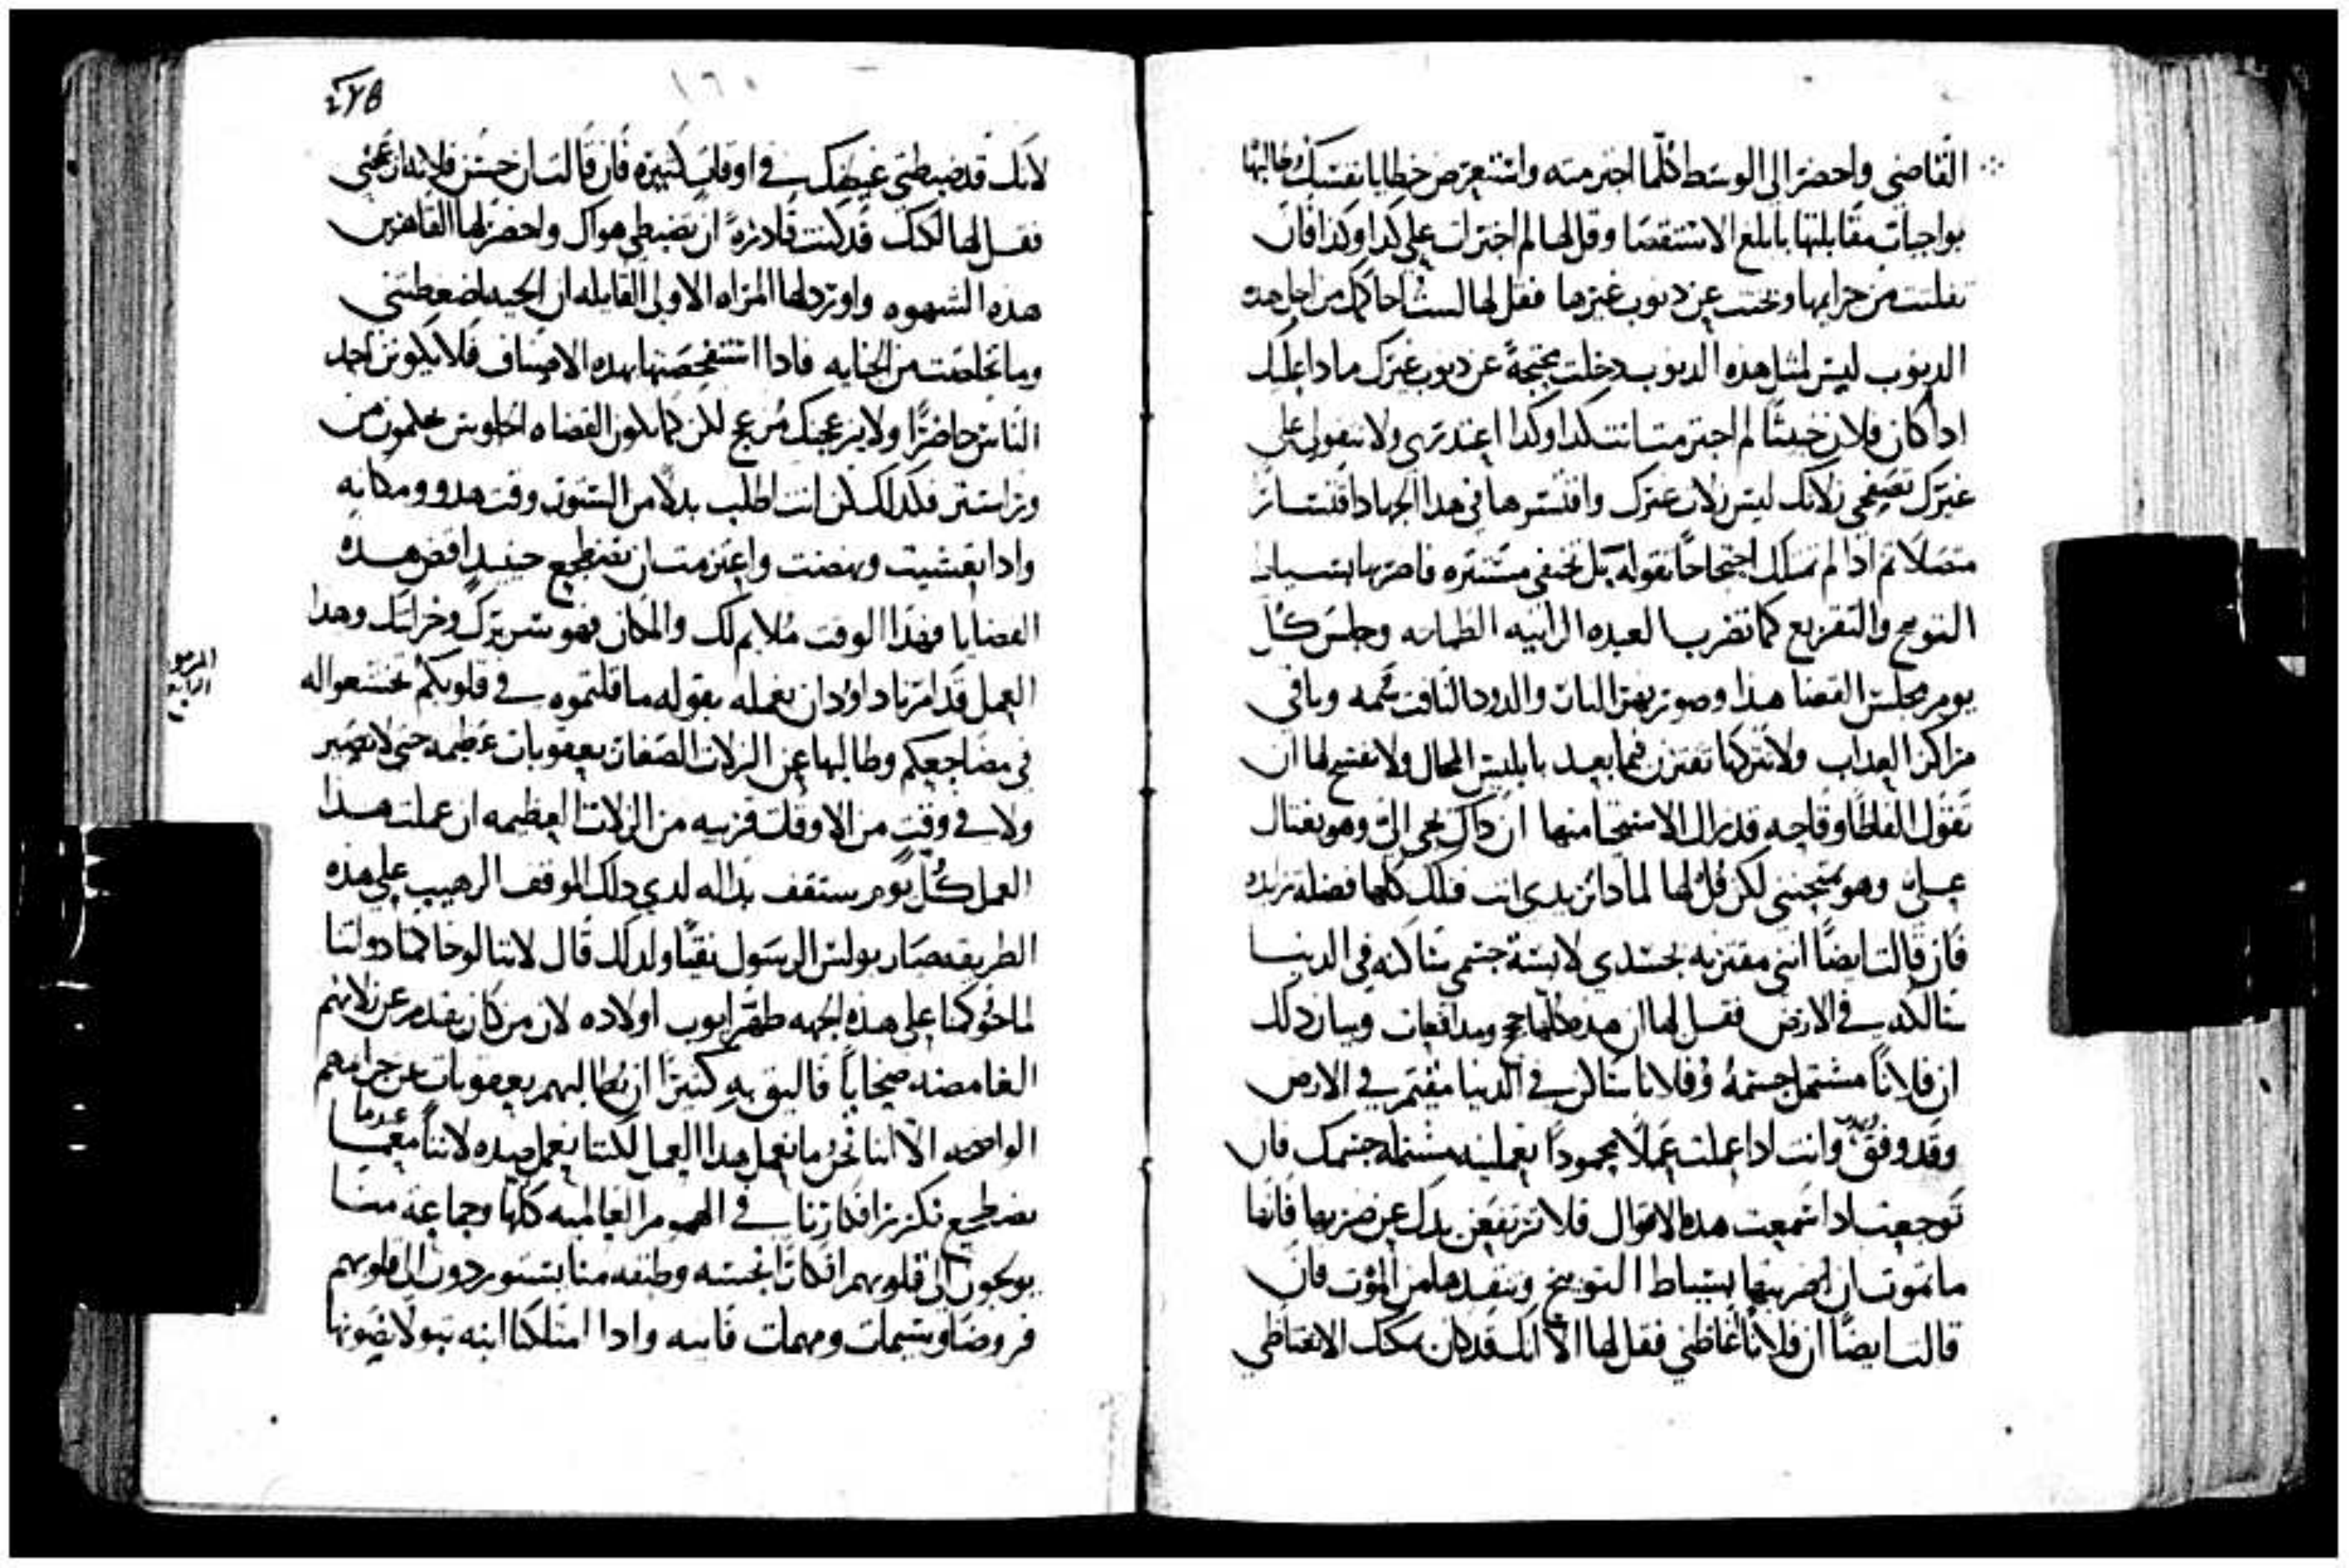 القاضي واحضر الى الوسط كلما اجترمته واستعرض خطايا نفسك وطالبها
بواجبات مقابلتها بابلغ الاستقصا وقل لها لم اجترات على كدا وكدا فان
تفلتت من جرايمها وبحتت عن دنوب غيرها فقل لها لست احاكمك من اجل هده
الدنوب ليس لمثل هذه الدنوب دخلت محتجةً عن دنوب غيرك مادا عليك
ادا كان فلان خبيثًا لم اجترمت انت كدا وكدا اعتدري ولا تتقولي على
غيرك تصفحي زلاتك ليس زلات غيرك وافسرها في هدا الجهاد اقتسارًا
متصلًا ثم ادا لم تملك احتجاجًا تقوله بل تختفي مستتره فاضربها بسياط
التوبيخ والتقريع كما تضرب العبده الرانيه الطماحه وجلس كل
يوم مجلس القضا هدا وصور نهر النار والدود النافت سمه وباقي
مراكز العداب ولا تتركها تقترن فيما بعد بابليس المحال ولا تفسح لها ان
تقول الفاظًا وقاحه قد زال الاستحيا منها ان داك يجي الي وهو يغتال
علي وهو يمتحنني لكن قل لها لما دا تريدي انت فتلك كلها فضلة زايده
فان قالت ايضًا انني مقترنه بجسدي لابسة جسمي ساكنه في الدنيا
سالكه في الارض فقل لها ان هده كلها حجج ومدافعات وبيان دلك
ان فلانًا مشتمل جسمهُ وفلانا ساكن في الدنيا مقيم في الارض
وقد وفق وانت ادا عملت عملًا محمودًا تعملينه مشتمله جسمك فان
توجعت ادا سمعت هده الاقوال فلا ترتفعن يدك عن ضربها فانها
ما تموت ان اضربتها بسياط التوبيخ وتنقدها من الموت فان
قالت ايضًا ان فلانًا غاظني فقل لها الا انك قد كان يمكنك الا تغتاظي
٤٧٥
١٦٠
لانك قد ضبطتي غيظك في اوقات كثيره فان قالت ان حسن فلانه ازعجني
فقل لها لكنك قد كنت قادرةً ان تضبطي هواك واحضر لها القاهرين
هده الشهوه واورد لها المراه الاولى القايله ان الحيه اضغطتني
وما تخلصت من الجنايه فادا استفحصتها بهده الاصناف فلا يكونن احد
الناس حاضرًا ولا يزعجك مزعج لكن كما يكون القضاه الجلوس يحكمون من
ورا ستر فكدلك كن انت اطلب بدلًا من الستور وقت هدو ومكانه
وادا تعشيت ونهضت واعتزمت ان تضطجع حينيدٍ اقض هده
القضايا فهدا الوقت ملايم لك والمكان فهو سريرك وخزانتك وهدا
المزمور
الرابع
العمل قد امرنا داوُدان نعمله بقوله ما قلتموه في قلوبكم تخشعوا له
في مضاجعكم وطالبها عن الزلات الصغار بعقوبات عظيمه حتى لا تصير
ولا في وقت من الاوقات قريبه من الزلات العظيمه ان عملت هدا
العمل كل يوم ستقف بداله لدي دلك الموقف الرهيب على هده
الطريقه صار بولس الرسول نقيًا ولدلك قال لاننا لو حاكمنا دواتنا
لما حُوكمنا على هده الجهه طهر ايوب اولاده لان من كان يقدم عن زلاتهم
الغامضه ضحايًا فاليق به كثيرًا ان يطالبهم بعقوبات عن جرايمهم
الواضحه الا اننا نحن ما نعمل هدا العمل لكننا نعمل ضده لاننا معما
عدما
نضطجع نكرر افكارنا في الهموم العالميه كلها وجماعة منا
يولجون الى قلوبهم افكارًا نجسه وطيفه منا يستوردون الى قلوبهم
قروضًا وسيمات ومهمات فانيه وادا امتلكنا ابنه بتولا يصونها